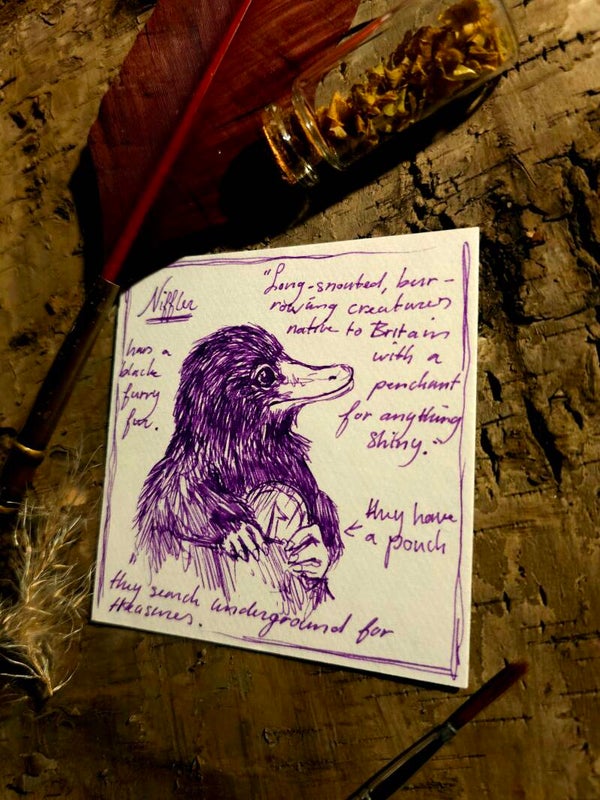 Niffler
"Long-snouted, bur-
rowing creatures
native to Britain
with a
penchant
for anything
shiny."
has a
black
furry
fur.
they have
a pouch
"
they search underground for
treasures.